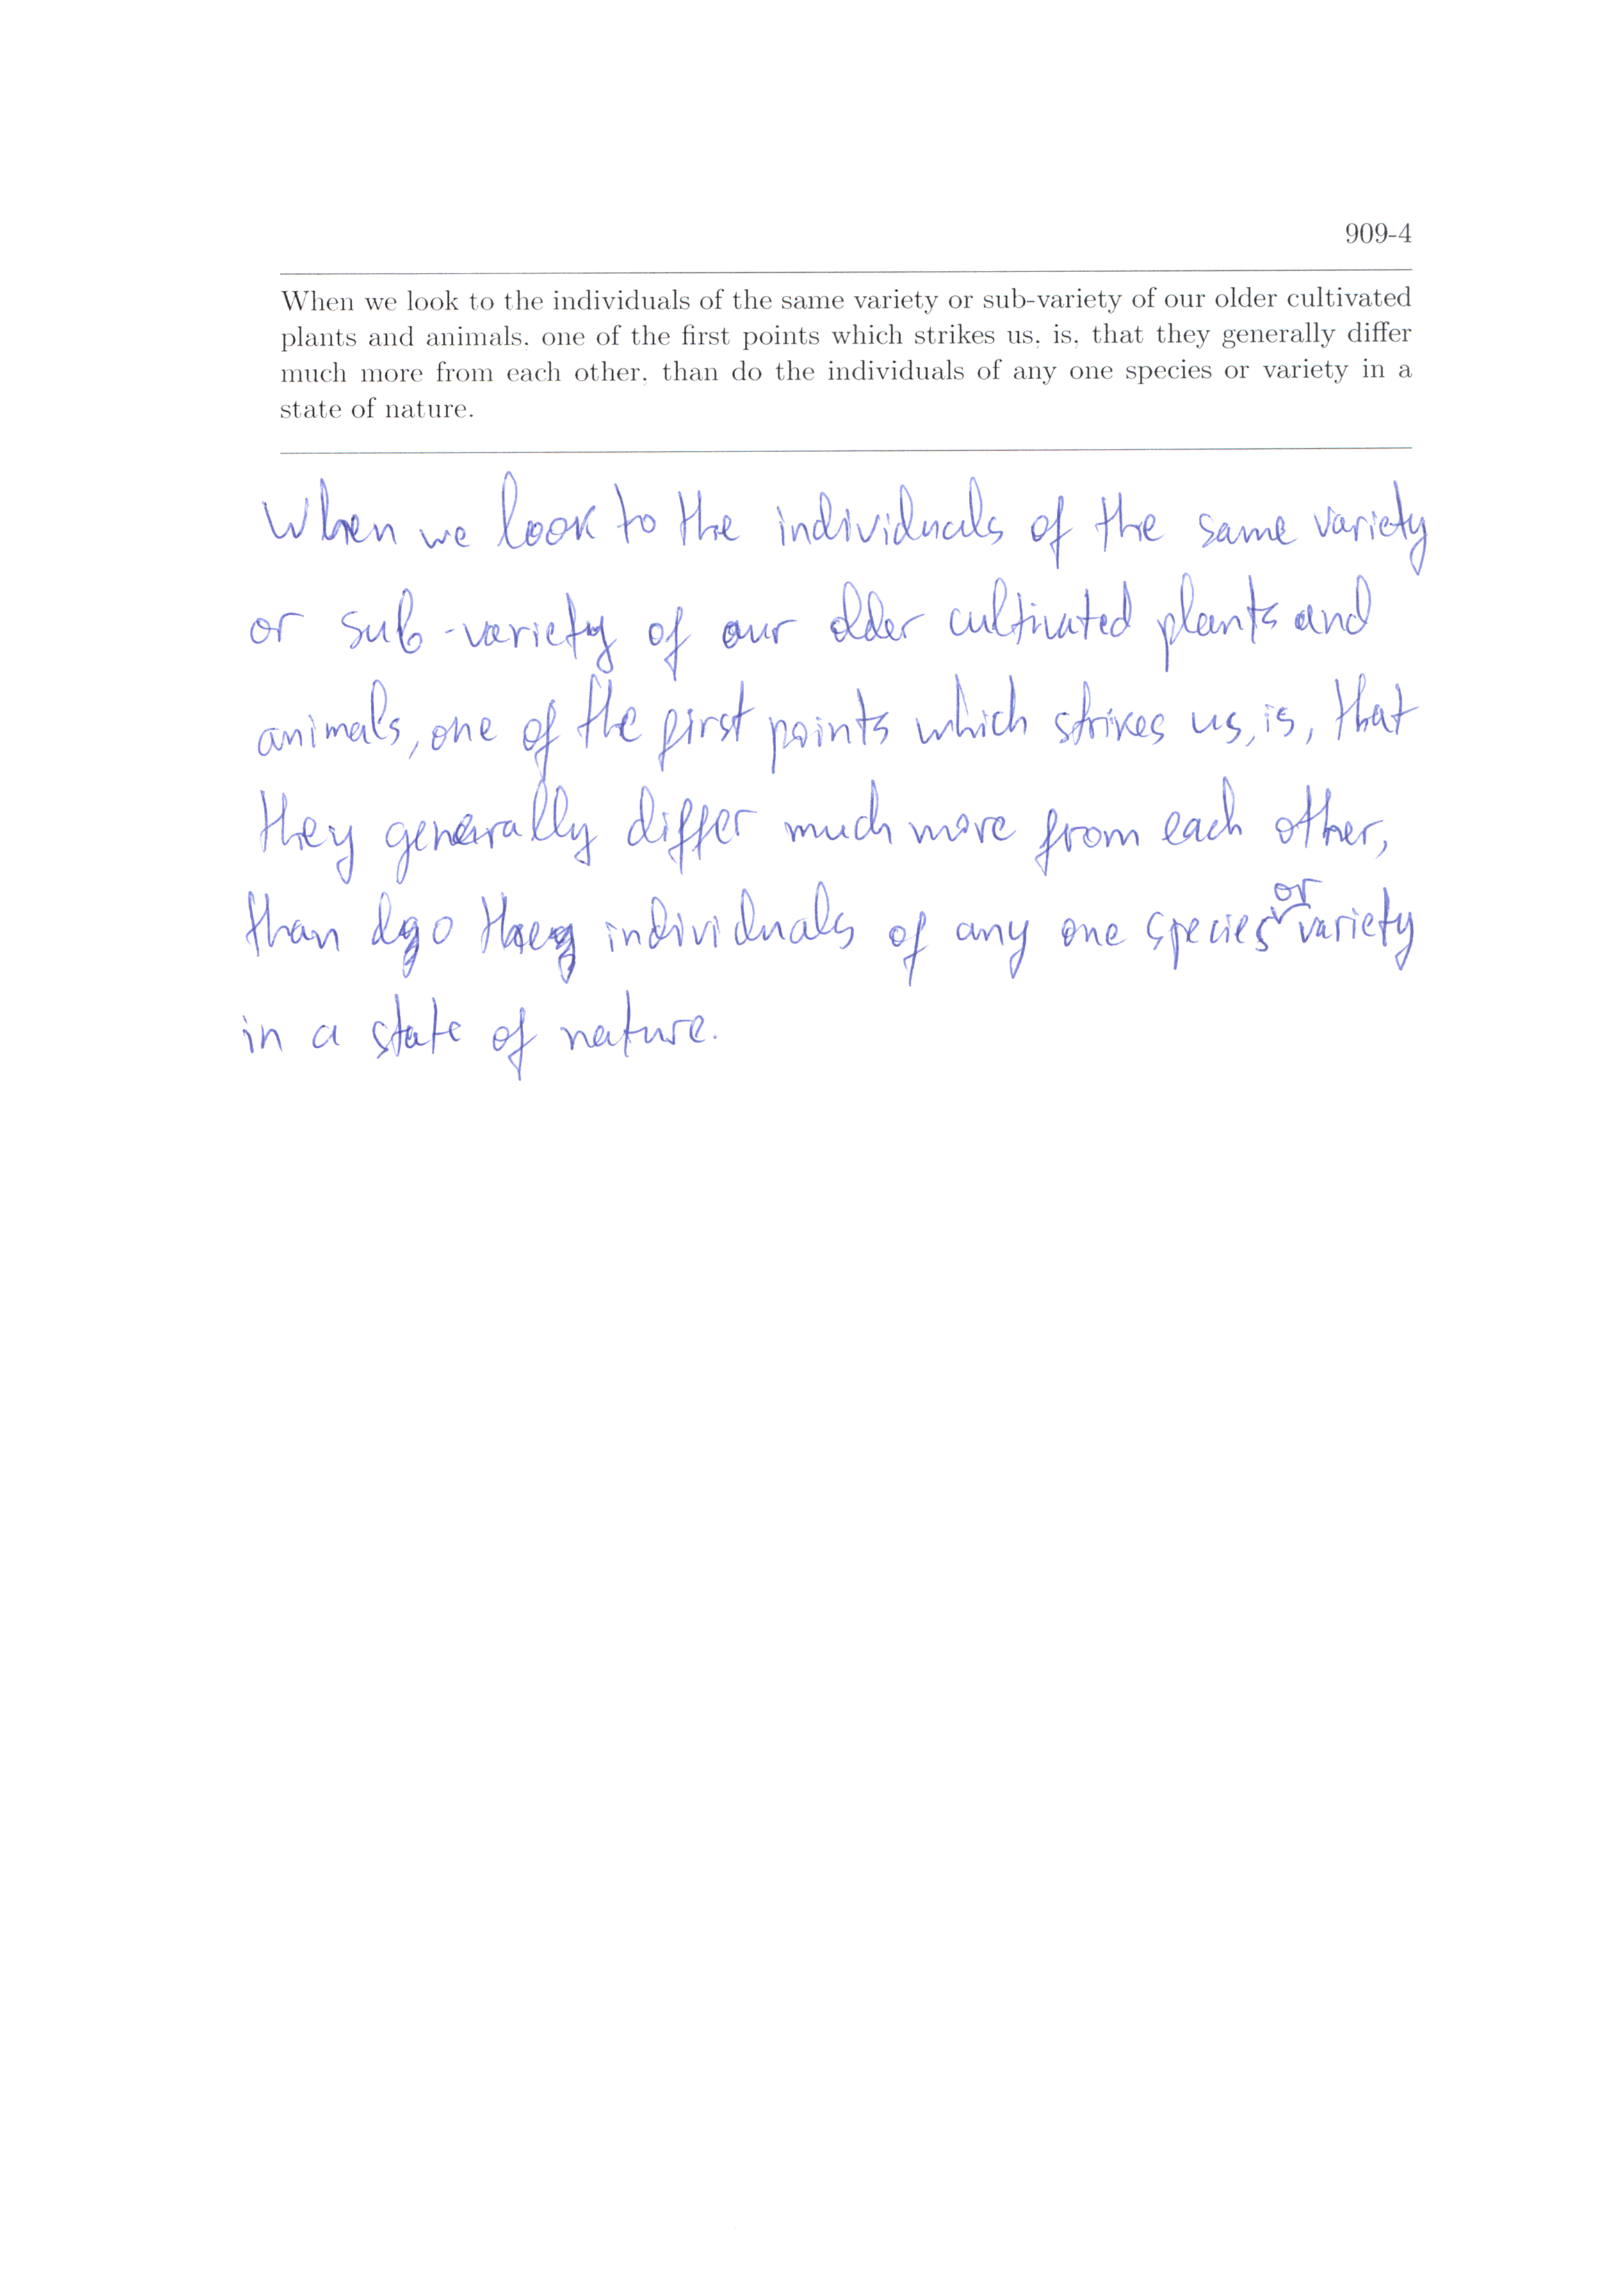 909-4
When we look to the individuals of the same variety or sub-variety of our older cultivated
plants and animals, one of the first points which strikes us, is, that they generally differ
much more from each other, than do the individuals of any one species or variety in a
state of nature.
When we look to the individuals of the same variety
or sub-variety of our older cultivated plants and
animals, one of the first points which strikes us, is, that
they generally differ much more from each other,
than do the individuals of any one species or variety
in a state of nature.